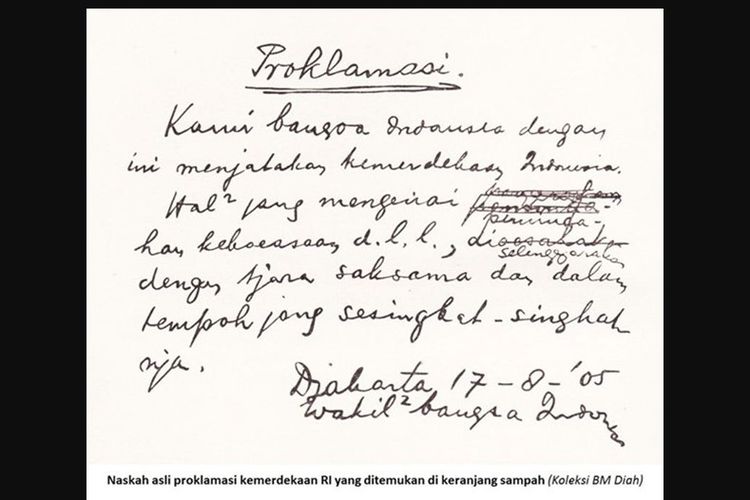 Proklamasi.
Kami bangsa Indonesia dengan
ini menjatakan kemerdekaan Indonesia.
Hal² jang mengenai
peminda-
han kekoeasaan d.l.l., dioesahakan
selenggarakan
dengan tjara saksama dan dalam
tempoh jang sesingkat-singkat
nja.
Djakarta, 17-8-'05
Wakil² bangsa Indonesia
Naskah asli proklamasi kemerdekaan RI yang ditemukan di keranjang sampah (Koleksi BM Diah)